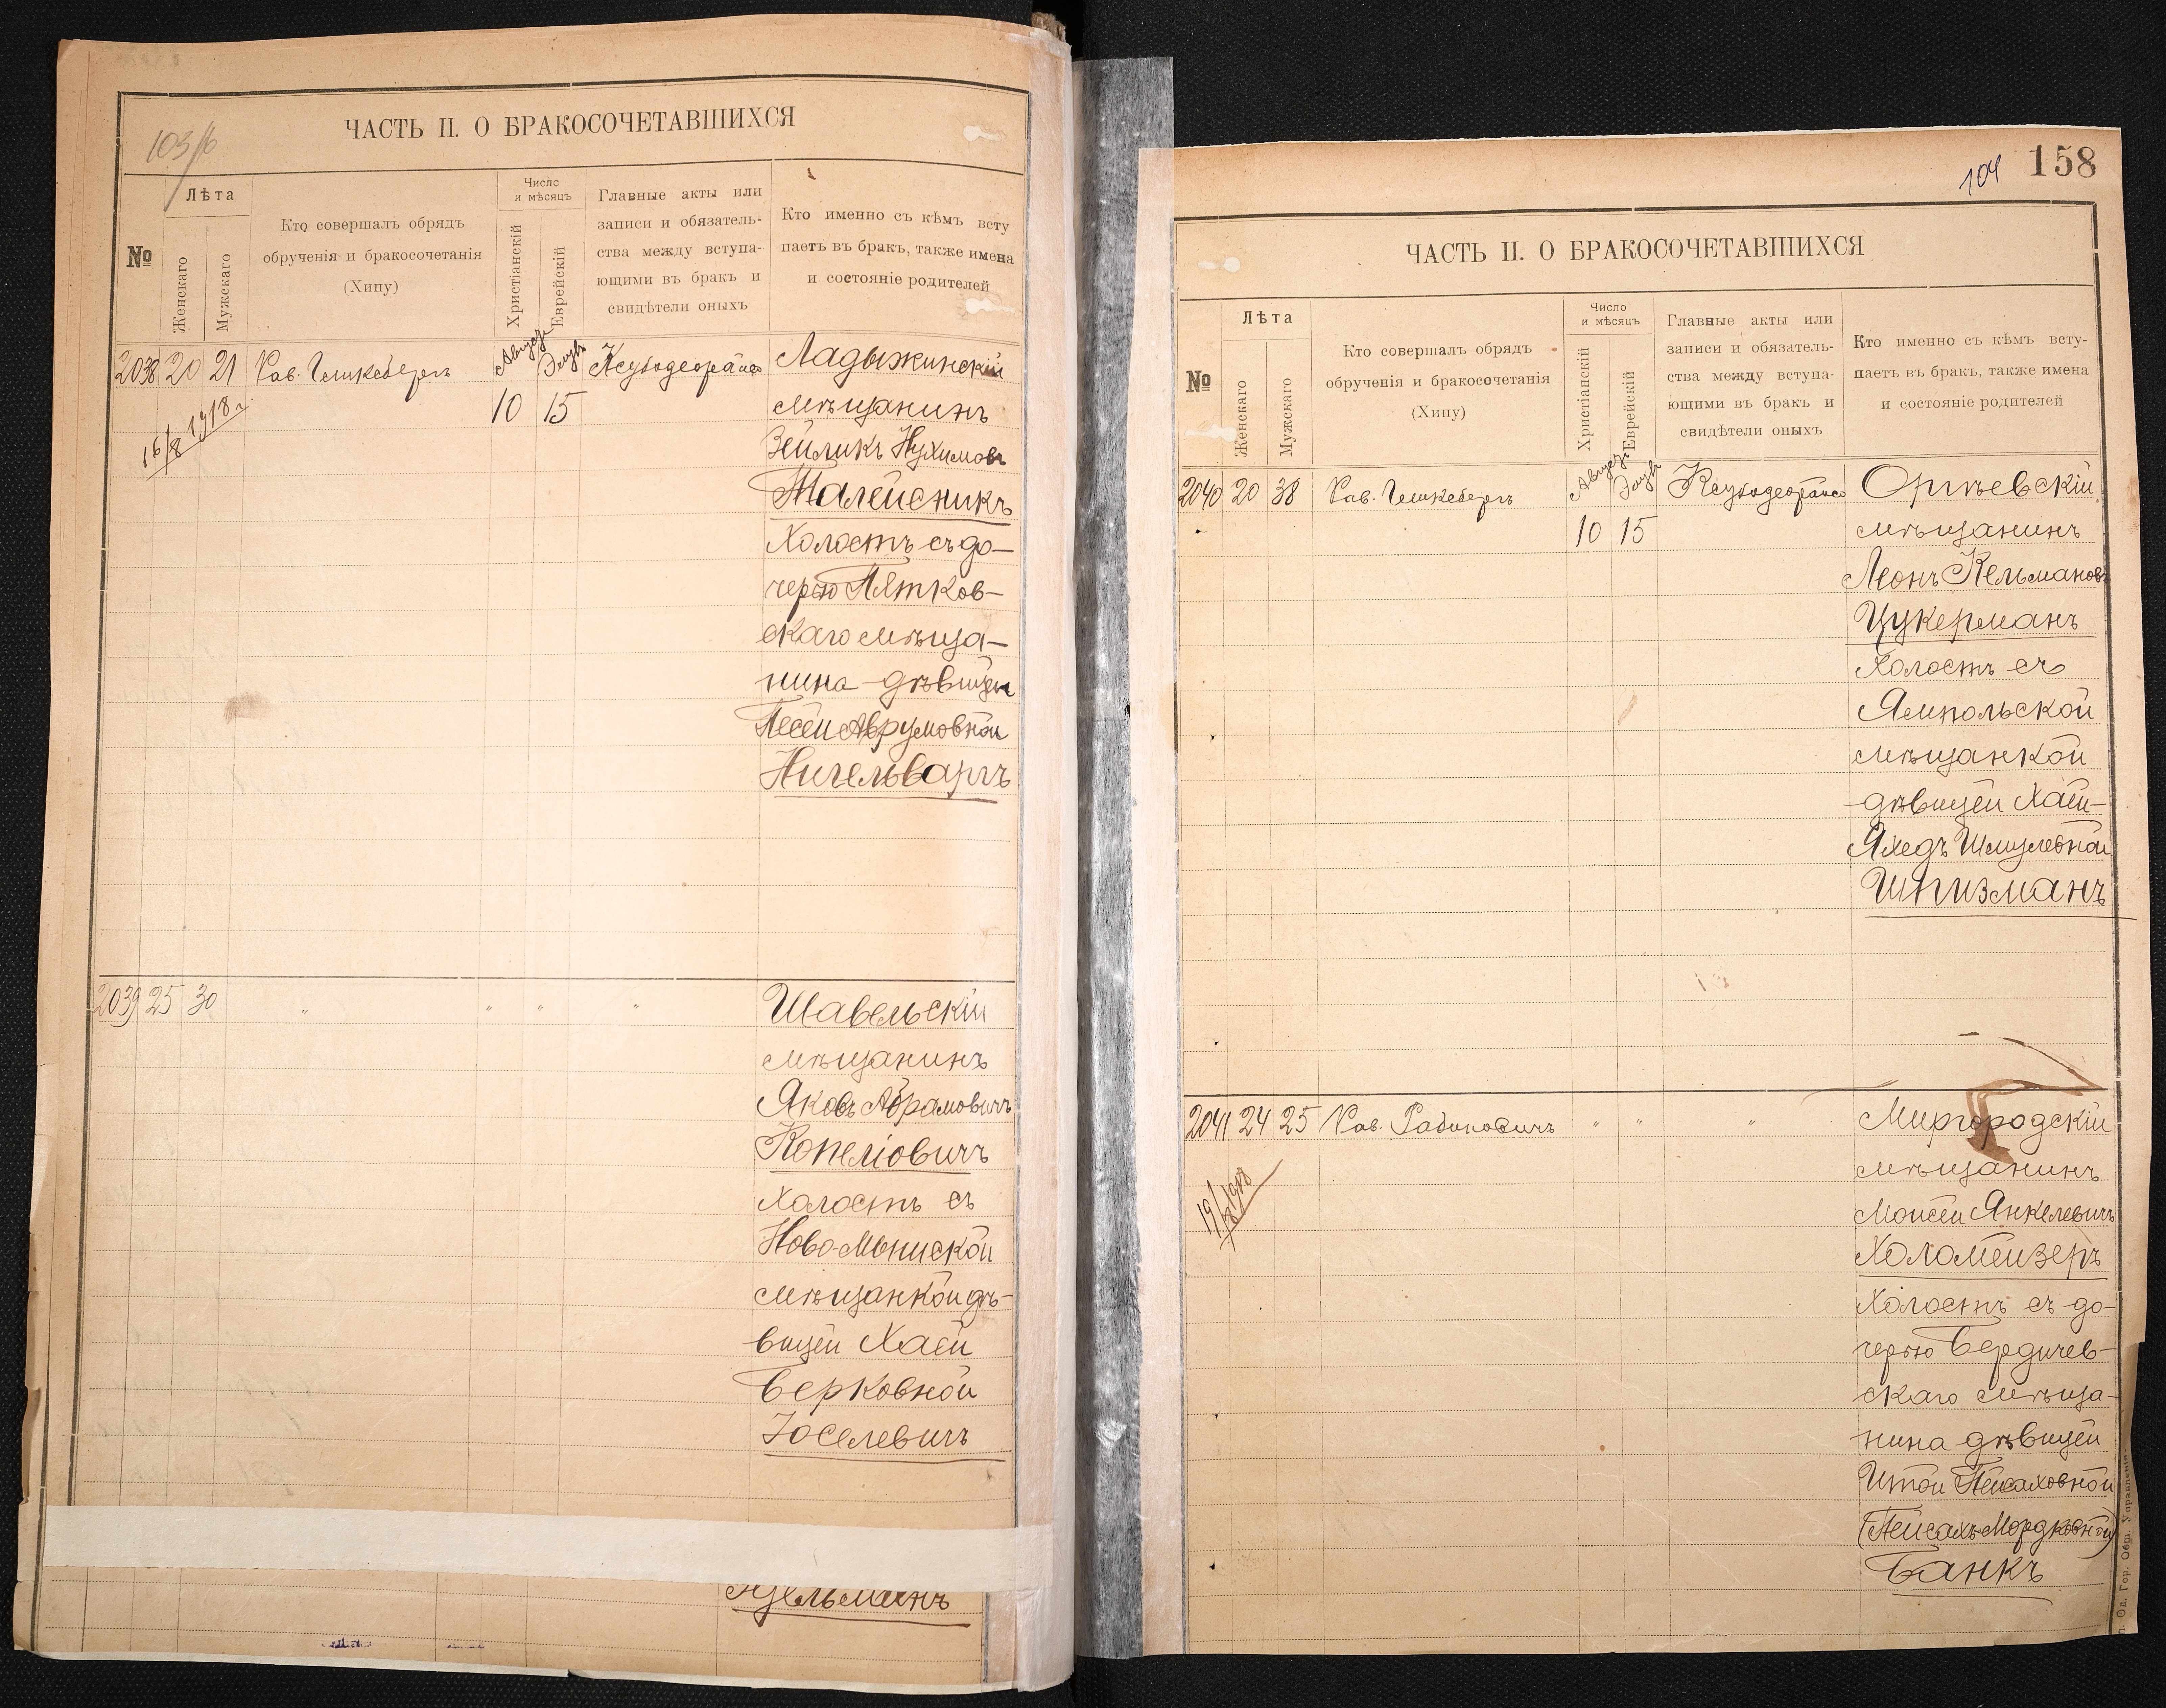 103/б
ЧАСТЬ II. О БРАКОСОЧЕТАВШИХСЯ
№
Лѣта
Женскаго
Мужскаго
Кто совершалъ обрядъ
обрученія и бракосочетанія
(Хипу)
Число
и мѣсяцъ
Христіанскій
Еврейскій
Главные акты или
записи и обязатель-
ства между вступа-
ющими въ бракъ и
свидѣтели оныхъ
Кто именно съ кѣмъ всту
паетъ въ бракъ, также имена
и состояніе родителей
2038 20 21 Рав.
10 15
16/8 1918 г.
Ладыжинскій
мѣщанинъ
Зейликъ Нухимовъ
Талейсникъ
Холостъ съ до-
черью Пятков-
скаго мѣща-
нина дѣвицей
Песей Аврумовной
Нигельваргъ
2039 25 30 " " " "
Шавельскій
мѣщанинъ
Яковъ Абрамовичъ
Копеліовичъ
Холостъ съ
Ново-Мышской
мѣщанкой дѣ-
вицей Хаей
Берковной
Іоселевичъ
158
104
ЧАСТЬ II. О БРАКОСОЧЕТАВШИХСЯ
№
Лѣта
Женскаго
Мужскаго
Кто совершалъ обрядъ
обрученія и бракосочетанія
(Хипу)
Число
и мѣсяцъ
Христіанскій
Еврейскій
Главные акты или
записи и обязатель-
ства между вступа-
ющими въ бракъ и
свидѣтели оныхъ
Кто именно съ кѣмъ всту-
паетъ въ бракъ, также имена
и состояніе родителей
2040 20 38 Рав.
10 15
Оргѣевскій
мѣщанинъ
Леонъ Кельмановъ
Цукерманъ
Холостъ съ
Ямпольской
мѣщанкой
дѣвицей Хаей-
Яхедъ Шмулевной
Шпизманъ
2041 24 25 Рав. Рабиновичъ " " "
Миргородскій
мѣщанинъ
Моисей Янкелевичъ
Холомейзеръ
Холостъ съ до-
черью Бердичев-
скаго мѣща-
нина дѣвицей
Итой Пейсаховной
(Пейсахъ-Мордковной)
Банкъ
Од. Гор. Общ. Управленія